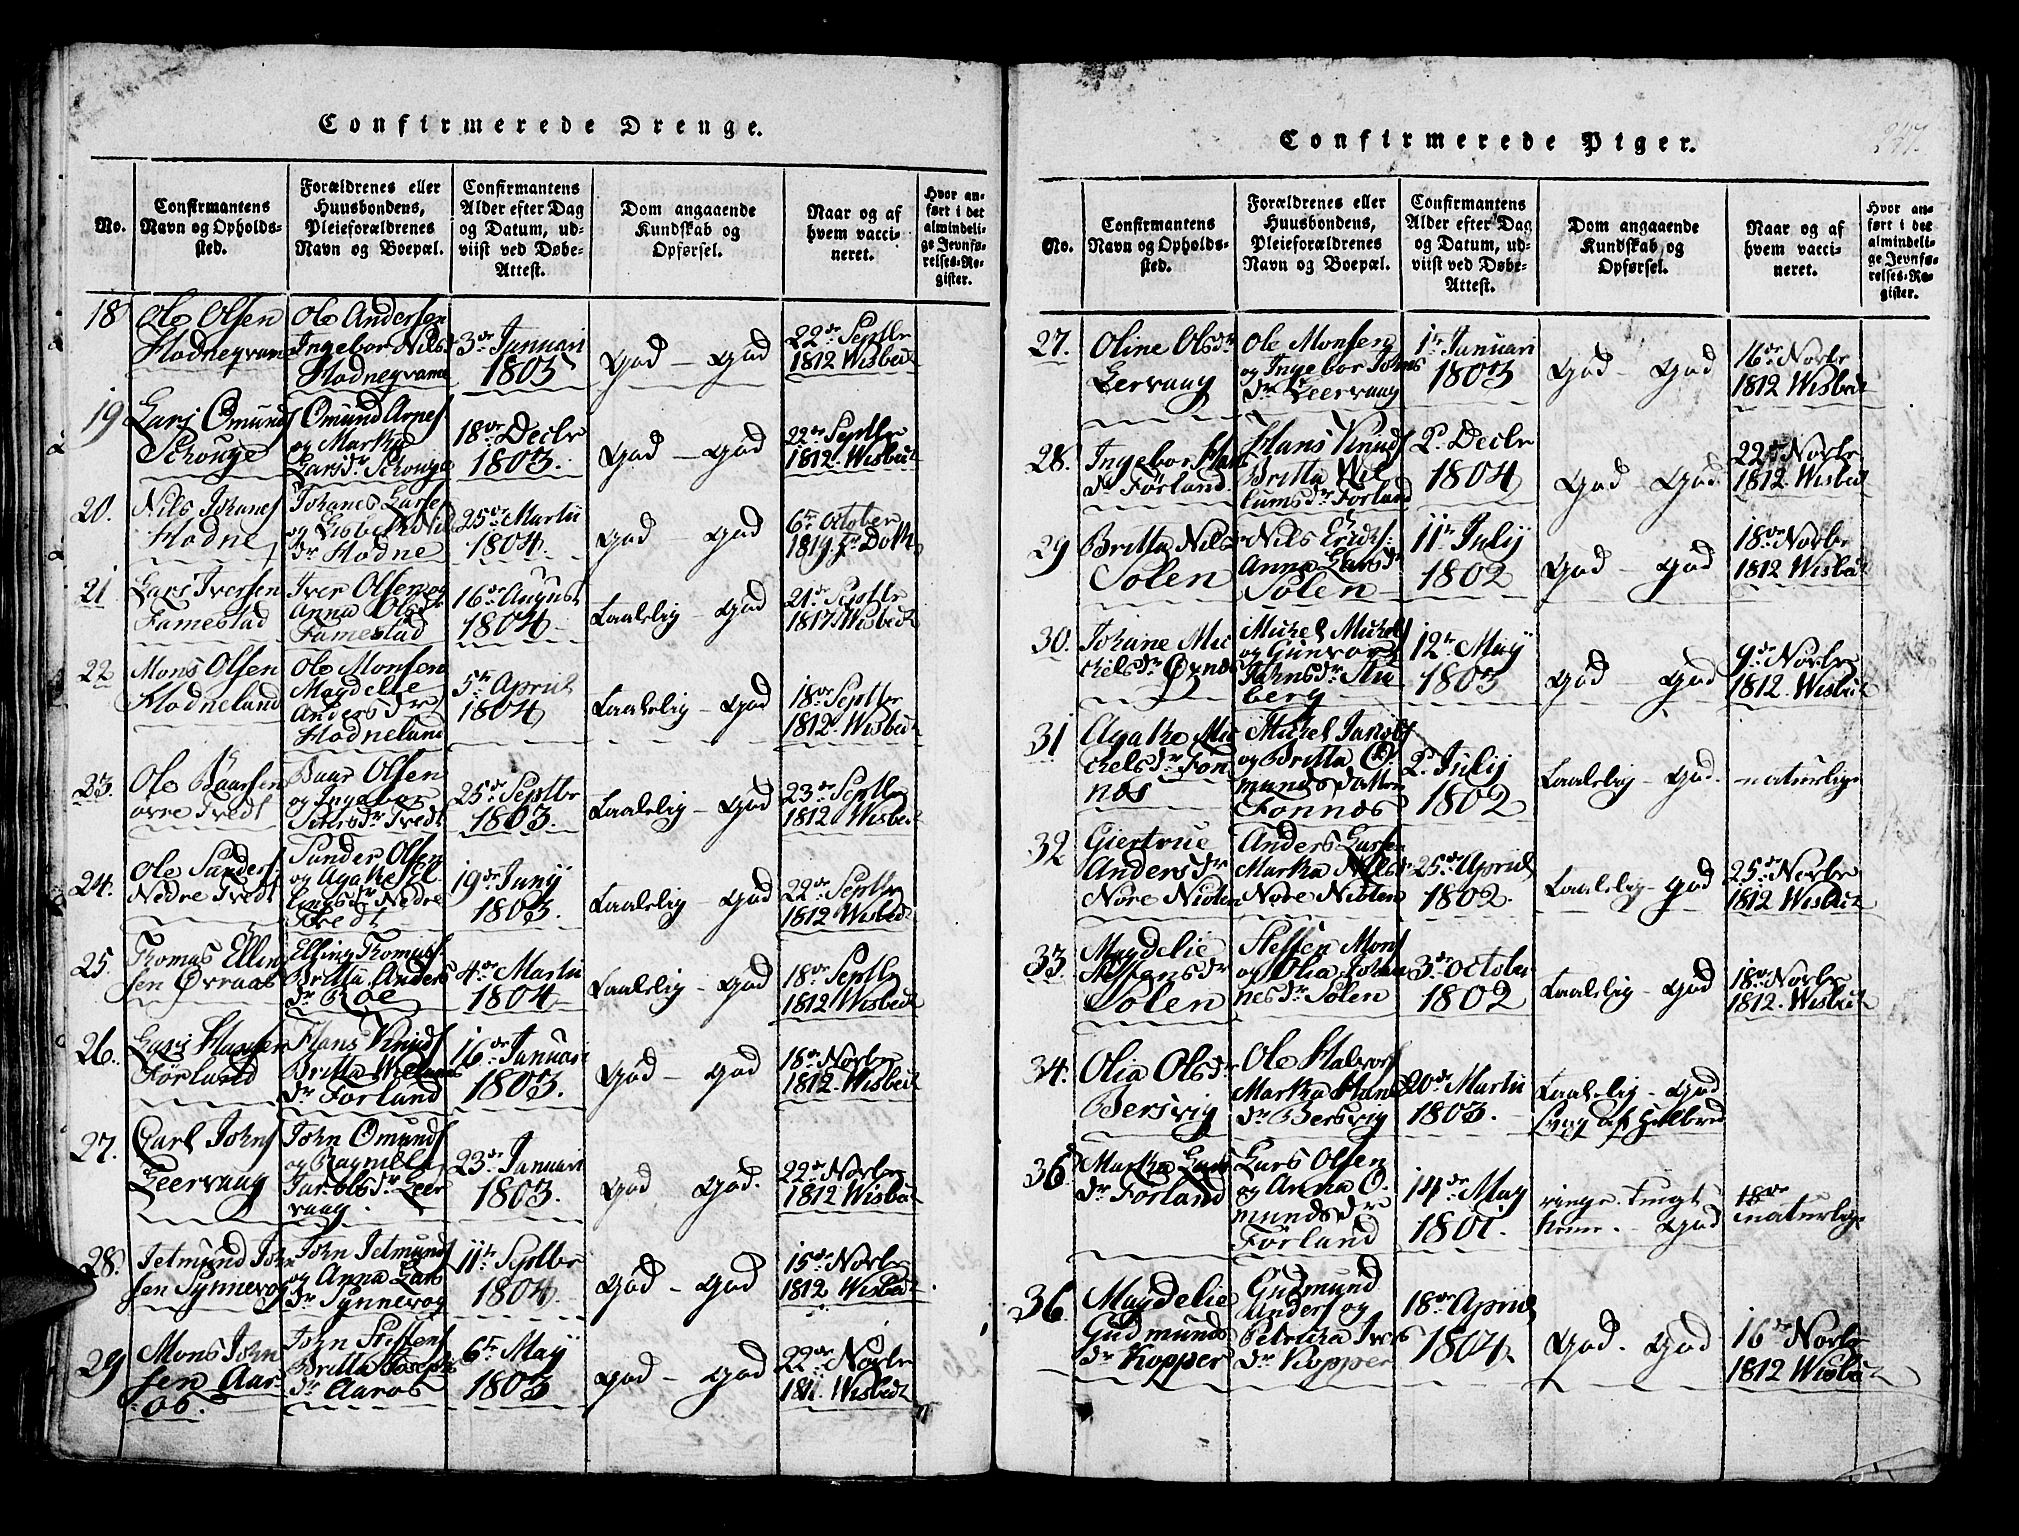 Confirmerede Drenge.
No.
Confirmantens
Navn og Opholds-
sted.
Forældrenes eller
Huusbondens,
Pleieforældrenes
Navn og Boepæl.
Confirmantens
Alder efter Dag
og Datum, ud-
viist ved Døbe-
Attest.
Dom angaaende
Kundskab og
Opførsel.
Naar og af
hvem vacci-
neret.
Hvor an-
ført i det
almindeli-
ge Jevnfø-
relses-Re-
gister.
18
Ole Olsen
Hodneqvame
Ole Andersen
Ingebor Nils
Hodneqvame
3de Januari
1803
God - God
22de Septbr
1812 Wisbech
19
Lars Omunds
Schouge
Omund Arnes
og Martha
Larsdr Schouge
18de Decbr
1803.
God - God
22de Septbr
1812. Wisbech
20.
Nils Johanes
Hodne
Johanes Larse
og Lisbeth Nils
dr Hodne
25de Martii
1804.
God - God
6te October
1819
21
Lars Iversen
Famestad
Iver Olsen og
Anna Olsdr
Famestad
16de August
1804.
Taalelig - God
21de Septbr
1817 Wisbech
22
Mons Olsen
Hodneland
Ole Monsen
Magdelie
Andersdr
Hodneland
5te April
1804
Taalelig - God
18de Septbr
1812. Wisbech
23.
Ole Baarsen
øvre Tvedt
Baar Olsen
og Ingebor
Tvedt
25de Septbr
1803.
Taalelig - God
23de Septbr
1812 Wisbech
24.
Ole Sanders
Nedre Tvedt
Sander Olsen
og Agathe El
lingsdr Nedre
Tvedt
19de Junij
1803.
Taalelig - God
22de Septbr
1812 Wisbech
25.
Thomas Ellin
sen Øvraas
Elling Thomas
Britta Anders
dr Roe
4de Martii
1804
Taalelig - God
18de Septbr
1812 Wisbech
26.
Lars Hansen
Førland
Hans Knuds
Britta Welums
dr Førland
16de Januari
1803.
God - God
18de Novbr
1812. Wisbech
27.
Carl Johns
Leervaag
John Omunds
og Ragnilla
Jacobsdr Leer
vaag.
23de Januari
1803.
God God.
22de Novbr
1812. Wisbech
28.
Jetmund John
sen Synnevog
John Jetmunds
og Anna Lars
dr Synnevog
11te Septbr
1804.
God - God
15de Novbr
1812 Wisbech
29
Mons John
sen Aar
-os.
John Steffens
Britta Josephs
dr Aaros
6te May
1803
God - God
22de Novbr
1811. Wisbech
Confirmerede Piger.
247.
No.
Confirmantens
Navn og Opholds-
sted.
Forældrenes eller
Huusbondens,
Pleieforældrenes
Navn og Boepæl.
Confirmantens
Alder efter Dag
og Datum, ud-
viist ved Døbe-
Attest.
Dom angaaende
Kundskab og
Opførsel.
Naar og af
hvem vacci-
neret.
Hvor an-
ført i det
almindeli-
ge Jevnfø-
relses-Re-
gister.
27.
Oline Olsdr
Leervaag
Ole Monsen
og Ingebor Johns
dr Leervaag
1te Januari
1803
God - God
16de Novbr
1812 Wisbech
28.
Ingebor Hans
dr Førland.
Hans Knuds
Britta Wel
lumsdr Førland
2d. Decbr
1804
God God.
22de Novbr
1812. Wisbech
29
Britta Nils
Solen
Nils Erichs:
Anna Larsdr
Solen
11te Julij
1802
God - God
18de Novbr
1812 Wisbech
30.
Johane Mic
chelsdr
Michel Michels
og Gunvor
Johnsdr Stu
berg
12te Maij
1803
God - God
9de Novbr
1812. Wisbech
31
Agathe Mic
chelsdr Fon
nes
Michel Jacobs
og Britta O
mundsdatter
Fonnes
2d. Julij
1802
Taalelig - God.
naturlige
32
Giertrue
Andersdr
Nore Niolen
Anders Larsen
Martha Nilsdr
Nore Niolen
25de April
1802.
Taalelig - God
25de Novbr
1812 Wisbech
33.
Magdelie
Steffensdr
Solen
Steffen Mons
og Olia Johan
nesdr Solen
3de October
1802
Taalelig - God
18de Novbr
1812. Wisbech
34.
Olia Olsdr
Bersvig
Ole Halvors
Martha Hans
dr Bersvig
20de Martii
1803.
Taalelig - God
Svag af Helbred
36
Martha Lars
dr Førland
Lars Olsen
og Anna O.
mundsdr
Førland
14de May
1801.
ringe.
- God
18de
naturlige
36.
Magdelie
Gudmunds
dr Kopper
Gudmund
Anders og
Petricha Ivers
dr Kopper
18de April
1804.
God. God
16de Novbr
1812 Wisbech